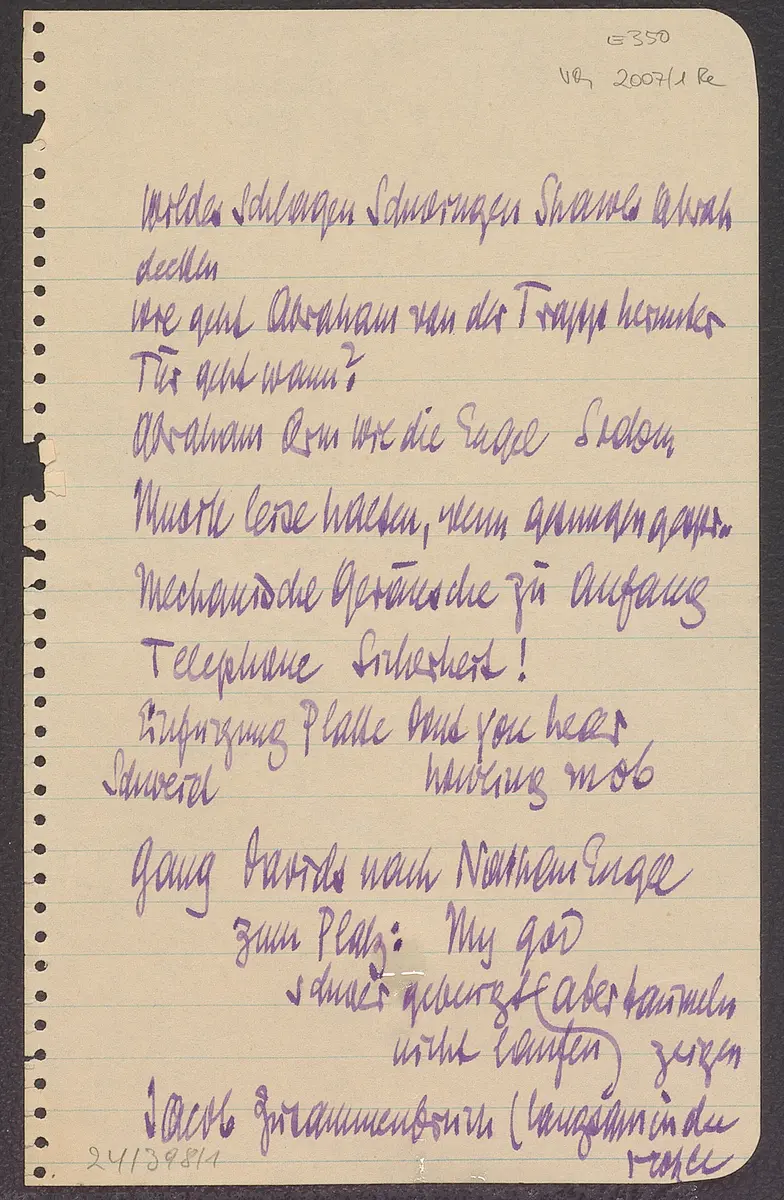 E350
2007/1 Re
wildes Schlagen Schwingen Shawls Abrah
decken
wie geht Abraham von der Trapp herunter
Tür geht wann?
Abraham Arm wie die Engel Sodom
Musik leise halten, wenn gesungen gespr.
Mechanische Geräusche zu Anfang
Telephone Sicherheit!
Einfügung Platte Dont you hear
Schweid howling mob
Gang Davids nach Nathan Engel
zum Platz: My god
schwer gebeugt (aber taumeln
nicht laufen) zeigen
Jacob Zusammenbruch (langsam in der
24/398/1